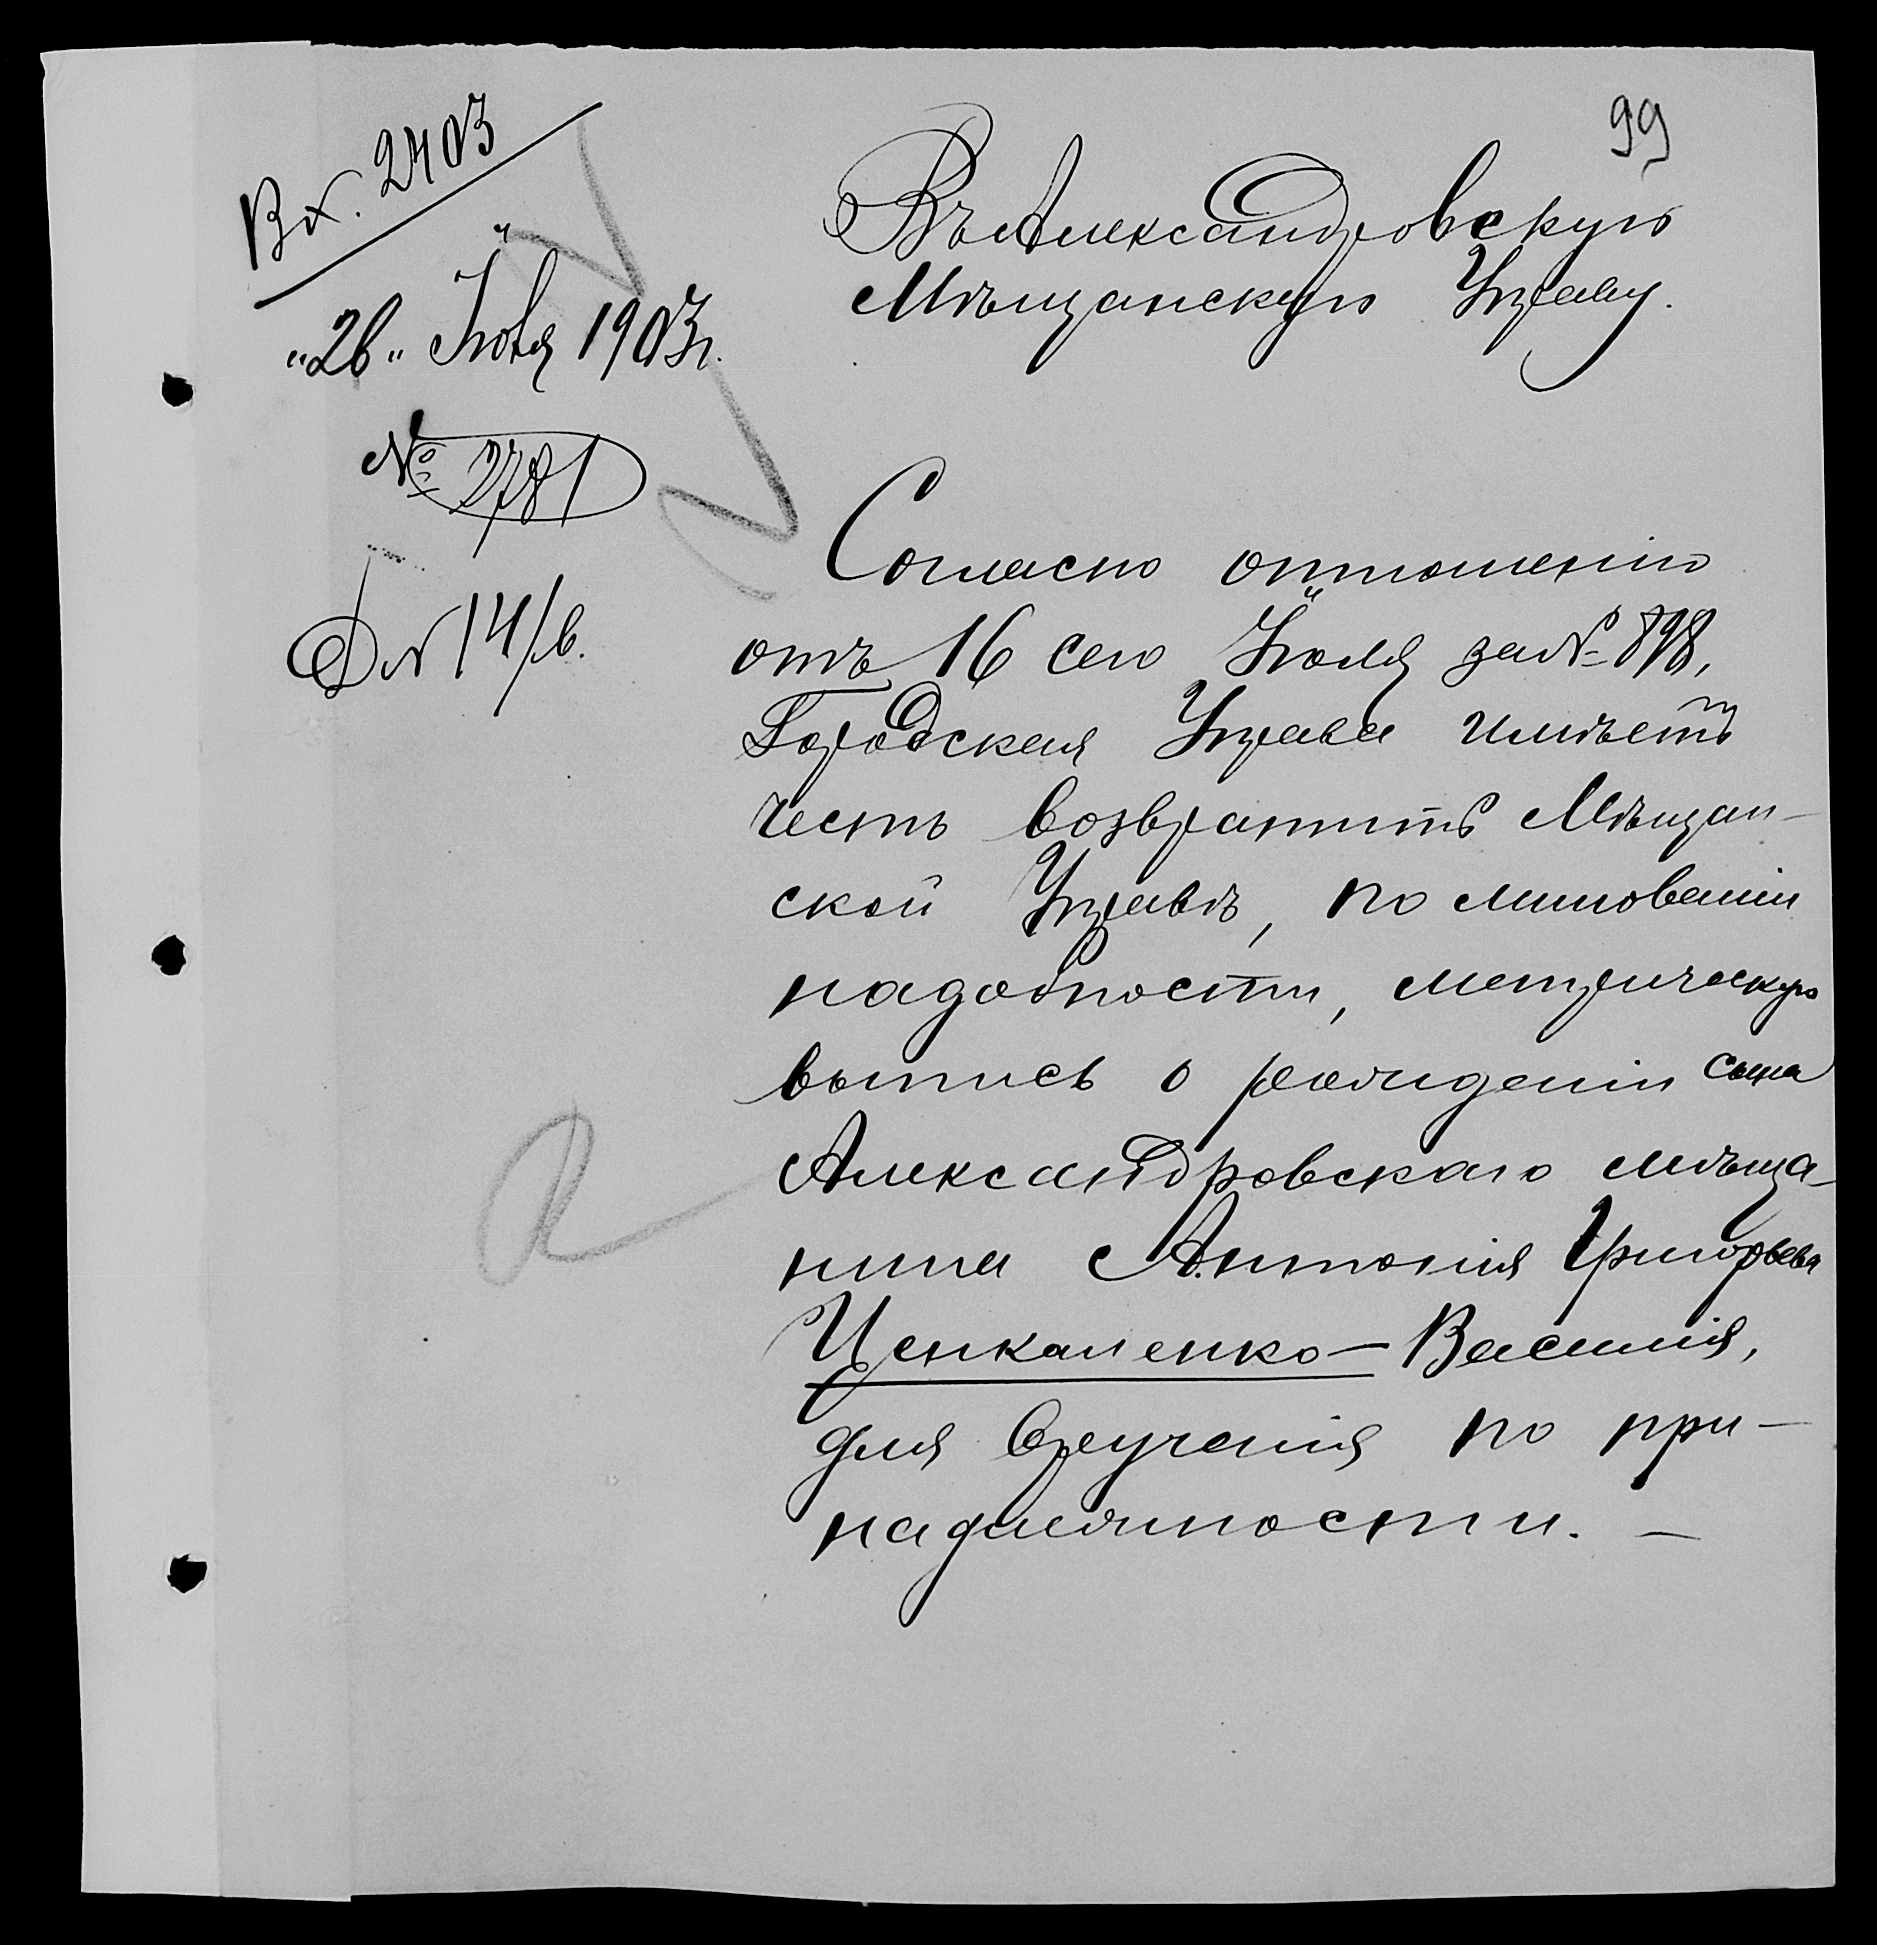 99
Вх. 2403
"26" Іюля 1903 г.
№ 2781
Д № 14/в.
Въ Александровскую
Мѣщанскую Управу.
Согласно отношенію
отъ 16 сего Іюля за № 898,
Городская Управа имѣетъ
честь возвратить Мѣщан-
ской Управѣ, по минованіи
надобности, метрическую
выпись о рожденіи сына
Александровскаго мѣща-
нина Антонія Григорьева
Ценкаленко - Василія,
для врученія по при-
надлежности. -